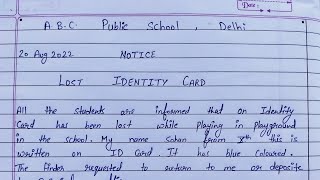 Date:
A.B.C. Public School, Delhi
20 Aug 2022 NOTICE
LOST IDENTITY CARD
All the students are informed that on Identity
Card has been lost while playing in playground
in the school. My name Sohan from X th this is
written on ID Card. It has blue Coloured.
The finder requested to return to me or deposite